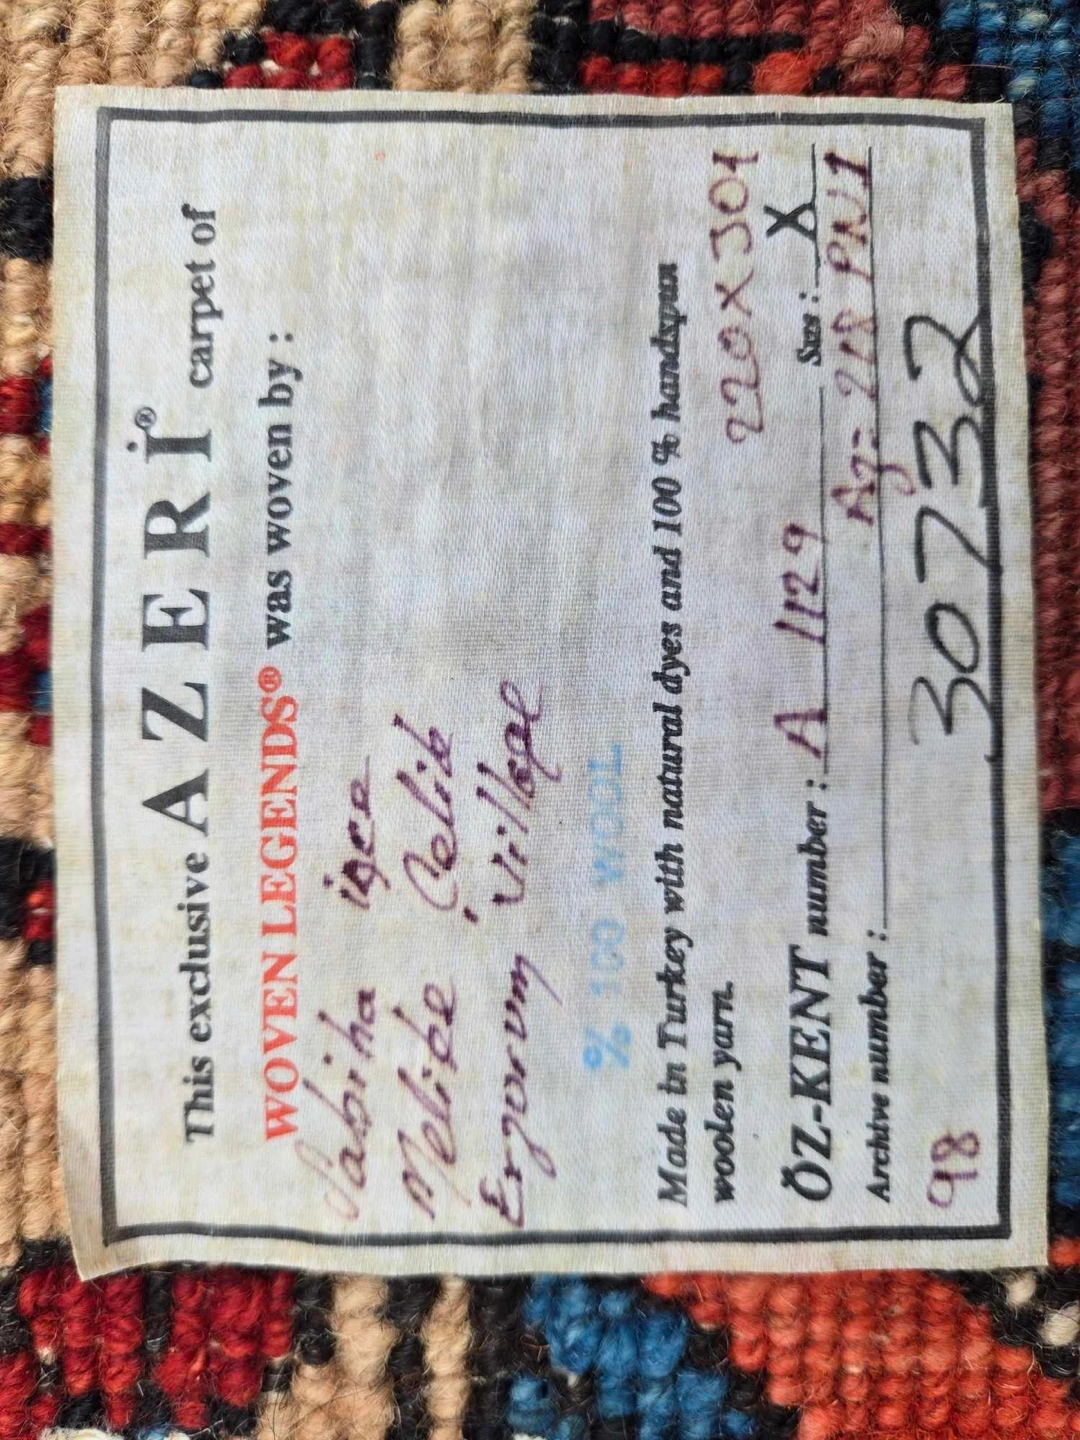 This exclusive AZERİ® carpet of
WOVEN LEGENDS® was woven by :
Sabiha ince
Melike Çelik
Erzorum, Village
% 100 WOOL
Made in Turkey with natural dyes and 100 % handspun
woolen yarn. 220X301
ÖZ-KENT number : A 1129 Size : X
Archive number : Az= 218 PN1
98 30732